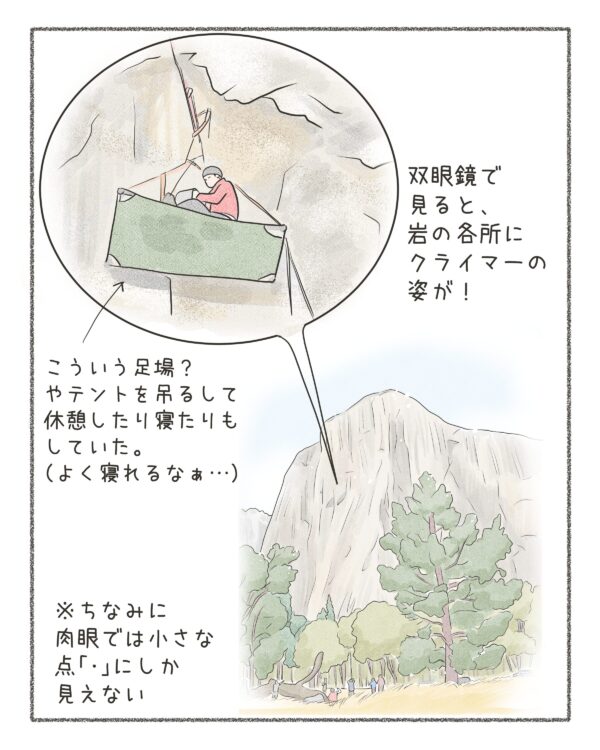 双眼鏡で
見ると、
岩の各所に
クライマーの
姿が！
こういう足場？
やテントを吊るして
休憩したり寝たりも
していた。
(よく寝れるなぁ…)
※ちなみに
肉眼では小さな
点「・」にしか
見えない